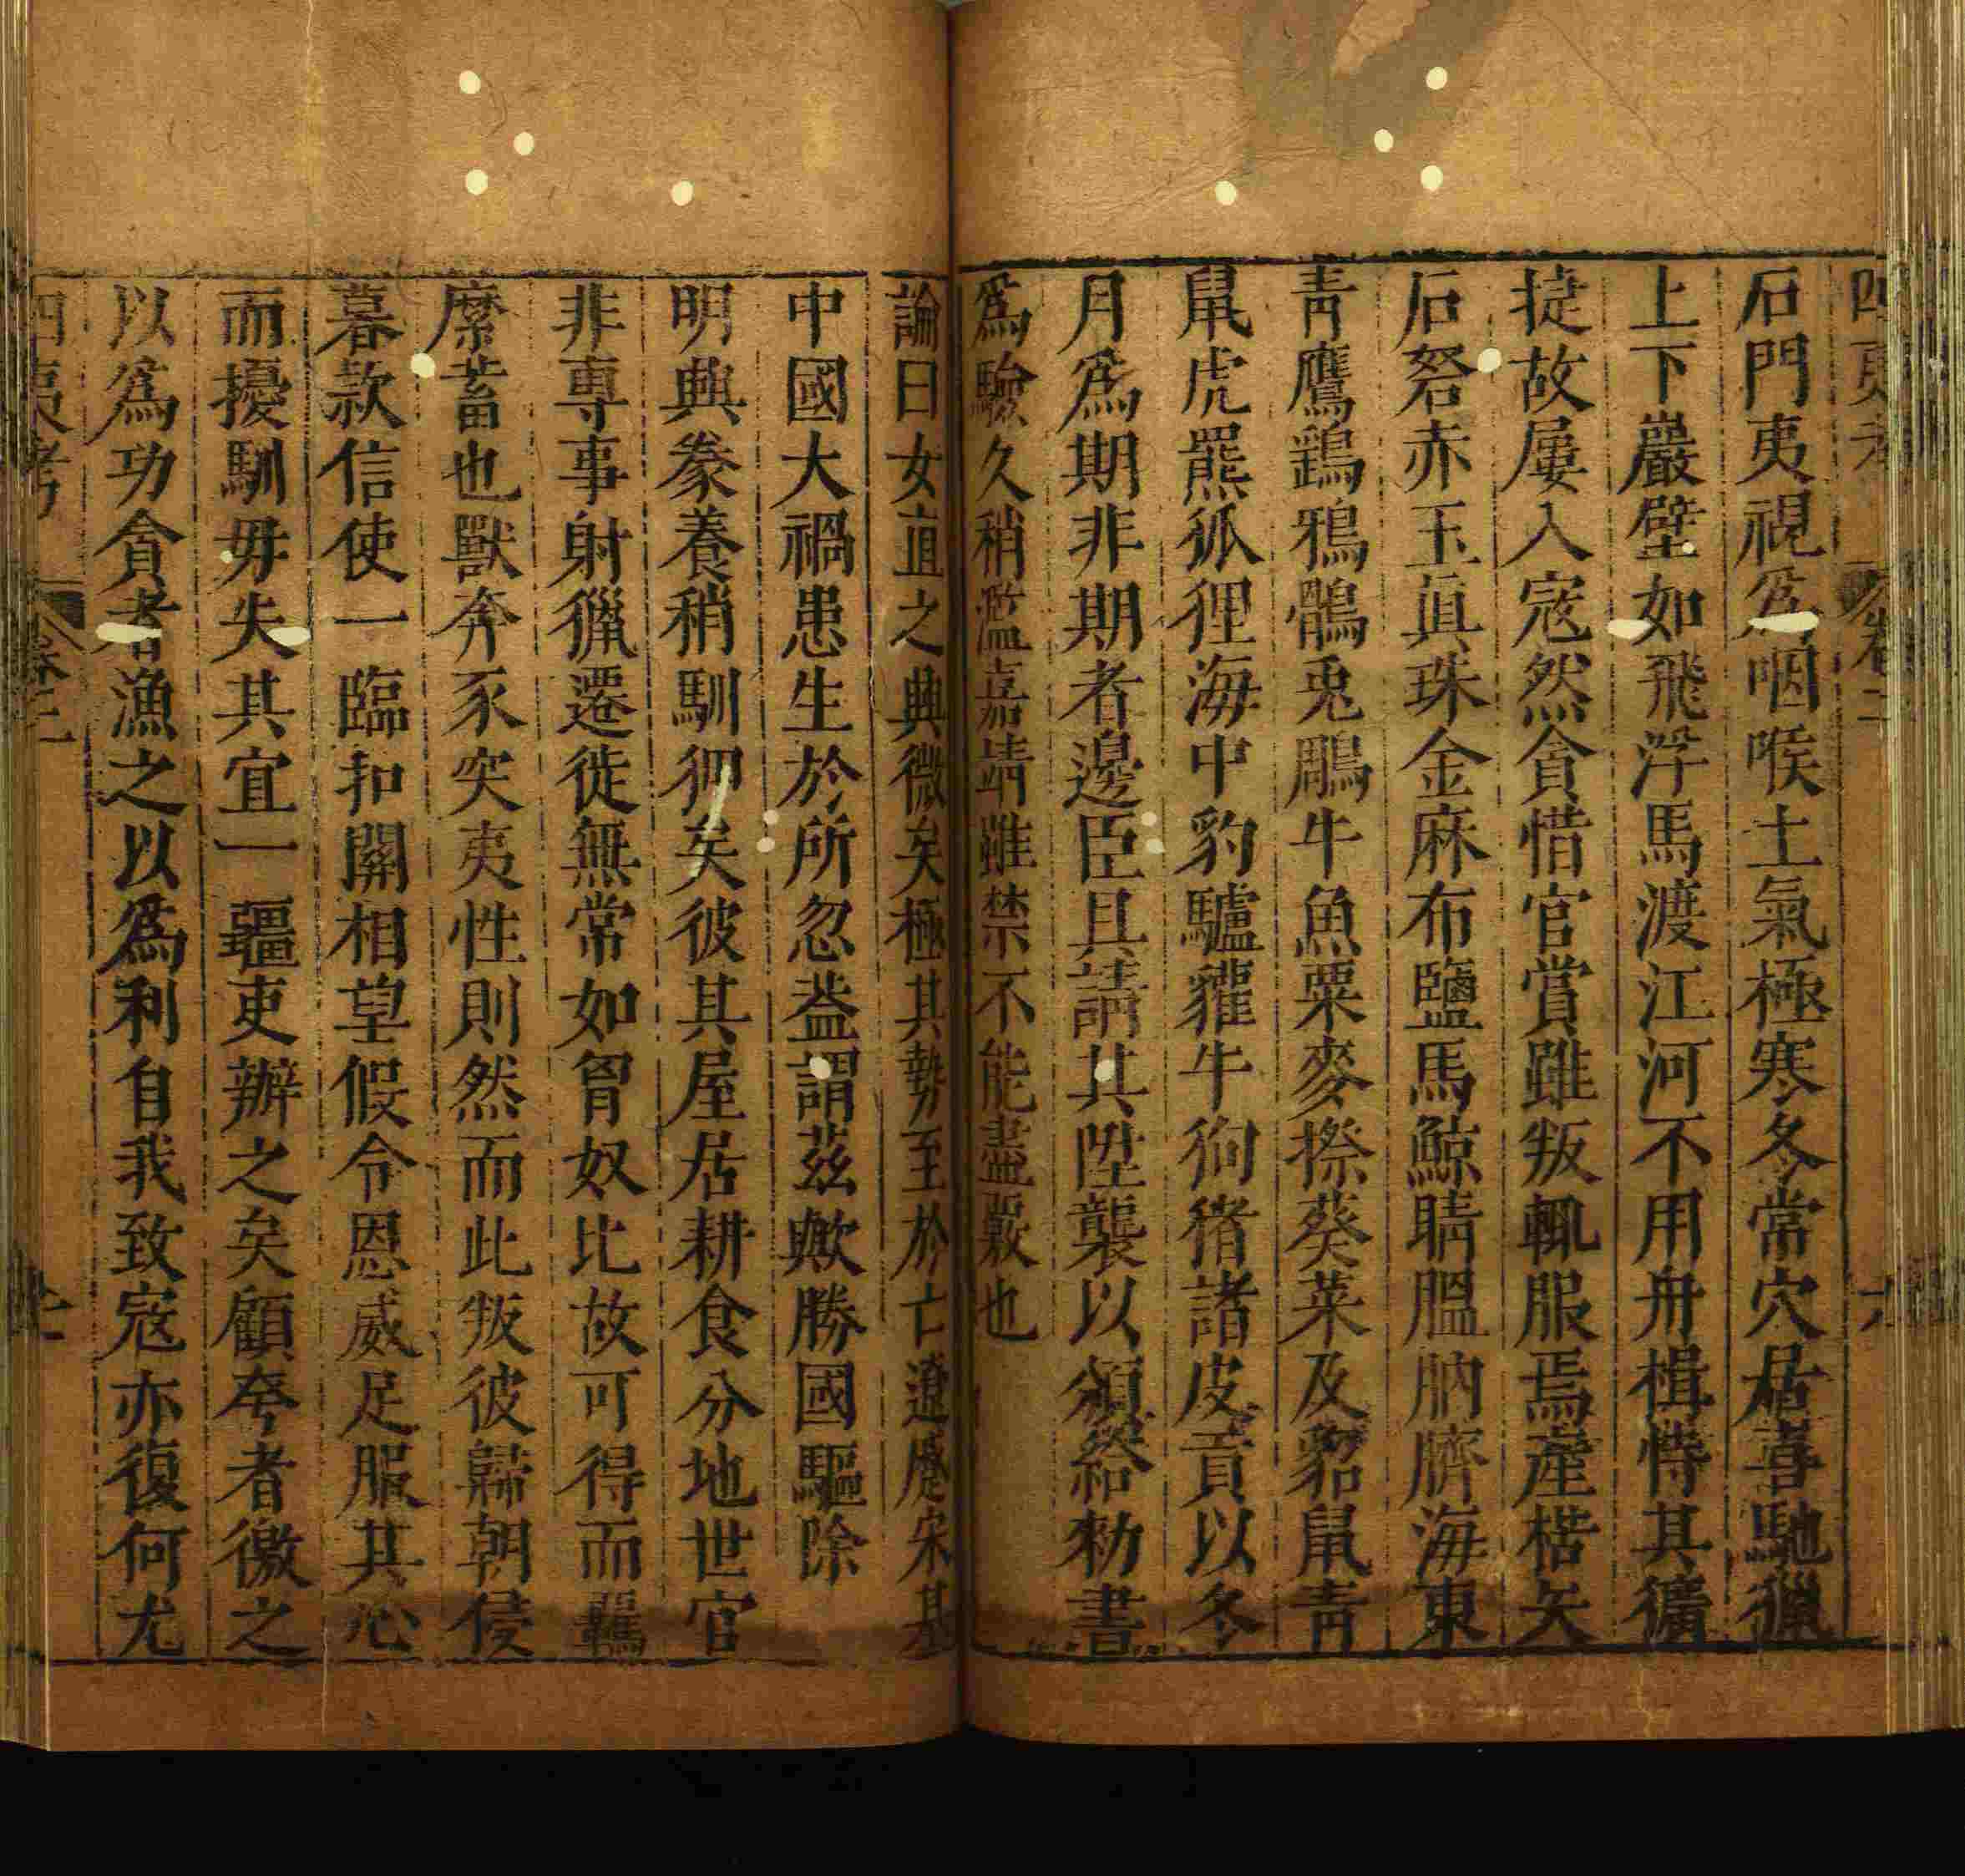 四夷考 卷二 六
石門夷視爲咽喉土氣極寒冬常穴居喜馳獵
上下巖壁如飛浮馬渡江河不用舟楫恃其獷
㨗故屢入寇然貪惜官賞雖叛輒服焉產楛矢
石砮赤玉真珠金麻布鹽馬鯨睛膃肭臍海東
青鷹鷂鴉鶻兎鵰牛魚粟麥穄葵菜及貂鼠青
鼠虎羆狐狸海中豹驢貛牛狗猪諸皮貢以冬
月爲期非期者邊臣具請其陞襲以頒給勑書
爲驗久稍濫嘉靖雖禁不能盡覈也
論曰女直之興微矣極其勢至於亡遼蹙宋基
中國大禍患生於所忽葢謂茲歟勝國驅除
明興豢養稍馴狎矣彼其屋居耕食分地世官
非專事射獵遷徙無常如匈奴比故可得而羈
縻畜也獸奔豕突夷性則然而此叛彼歸朝侵
暮款信使一臨扣關相望假令恩威足服其心
而擾馴毋失其宜一疆吏辦之矣顧夸者徼之
以爲功貪者漁之以爲利自我致寇亦復何尤
四夷考 卷二